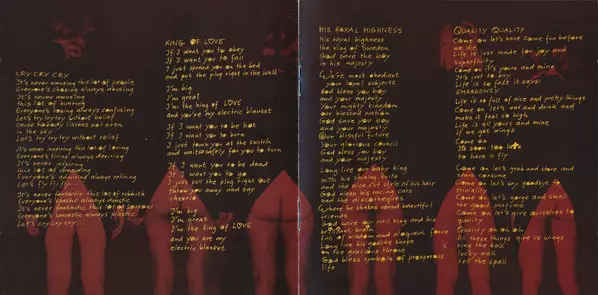 CRY CRY CRY
It's never amusing this lot of people
Everyone's chasing always abusing
It's never amusing
this lot of hunting
Everyone's loosing always confusing
Let's try try try without relief
Cause nobody listens not even
in the sky
Let's try try try without relief
It's never inspiring this lot of loving
Everyone's tiring always desiring
It's never inspiring
this lot of dreaming
Everyone's admiring always retiring
Let's fly fly
It's never fantastic this lot of rubbish
Everyone's spastic always drastic
It's never fantastic this lot of sorrow
Everyone's sarcastic always plastic
Let's cry cry cry...
KING OF LOVE
If I want you to obey
If I want you to fall
I just spread you on the bed
and put the plug right in the wall
I'm big
I'm great
I'm the king of LOVE
and you're my electric blanket
If I want you to be hot
If I want you to burn
I just touch you at the switch
and wait for you to
If I want you to be dead
If I want you to go
I just pull the plug right out
throw you away and say
cheerio
I'm big
I'm great
I'm the king of LOVE
and you are my
electric blanket
HIS ROYAL HIGHNESS
His royal highness
the king of Sweden
God save the boy
in his majesty
We're most obedient
your loyal subjects
God bless you boy
and your majesty
Your mighty kingdom
our blessed nation
God save you boy
and your majesty
Our blissful future
Your glorious council
God bless you boy
and your majesty
Long live our baby king
with his shining boots
and the nice cut style of his hair
God bless his racing cars
and the discotheques
Where he shakes
beautiful
friends
God save our evil king and his
brilliant brain
full of wisdom and eloquent force
Long live his godlike shape
on the gracious throne
God bless symbols of prosperous
life
QUALITY QUALITY
Come on let's have some fun before
we die
Life is just made for joy and
superfluity
Come on it's yours and mine
It's just to buy
Life is so safe it says:
EMERGENCY
Life is so full of nice and pretty things
Come on let's eat and drink and
make it feel so high
Life is all yours and mine
if we get wings
Come on
It's
to have a fly
Come on let's grab and store and
and consume
Come on let's say goodbye to
Come on let's gorge and smell
the good perfume
Come on let's give ourselves to
quality
Quality oh oh oh
All these things give us wings
ring the bell
lucky well
tell the spell